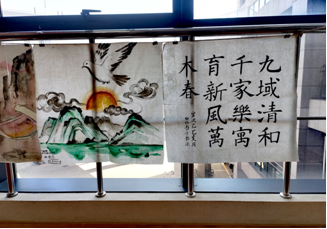 九域清和
千家樂寓
育新風萬
木春